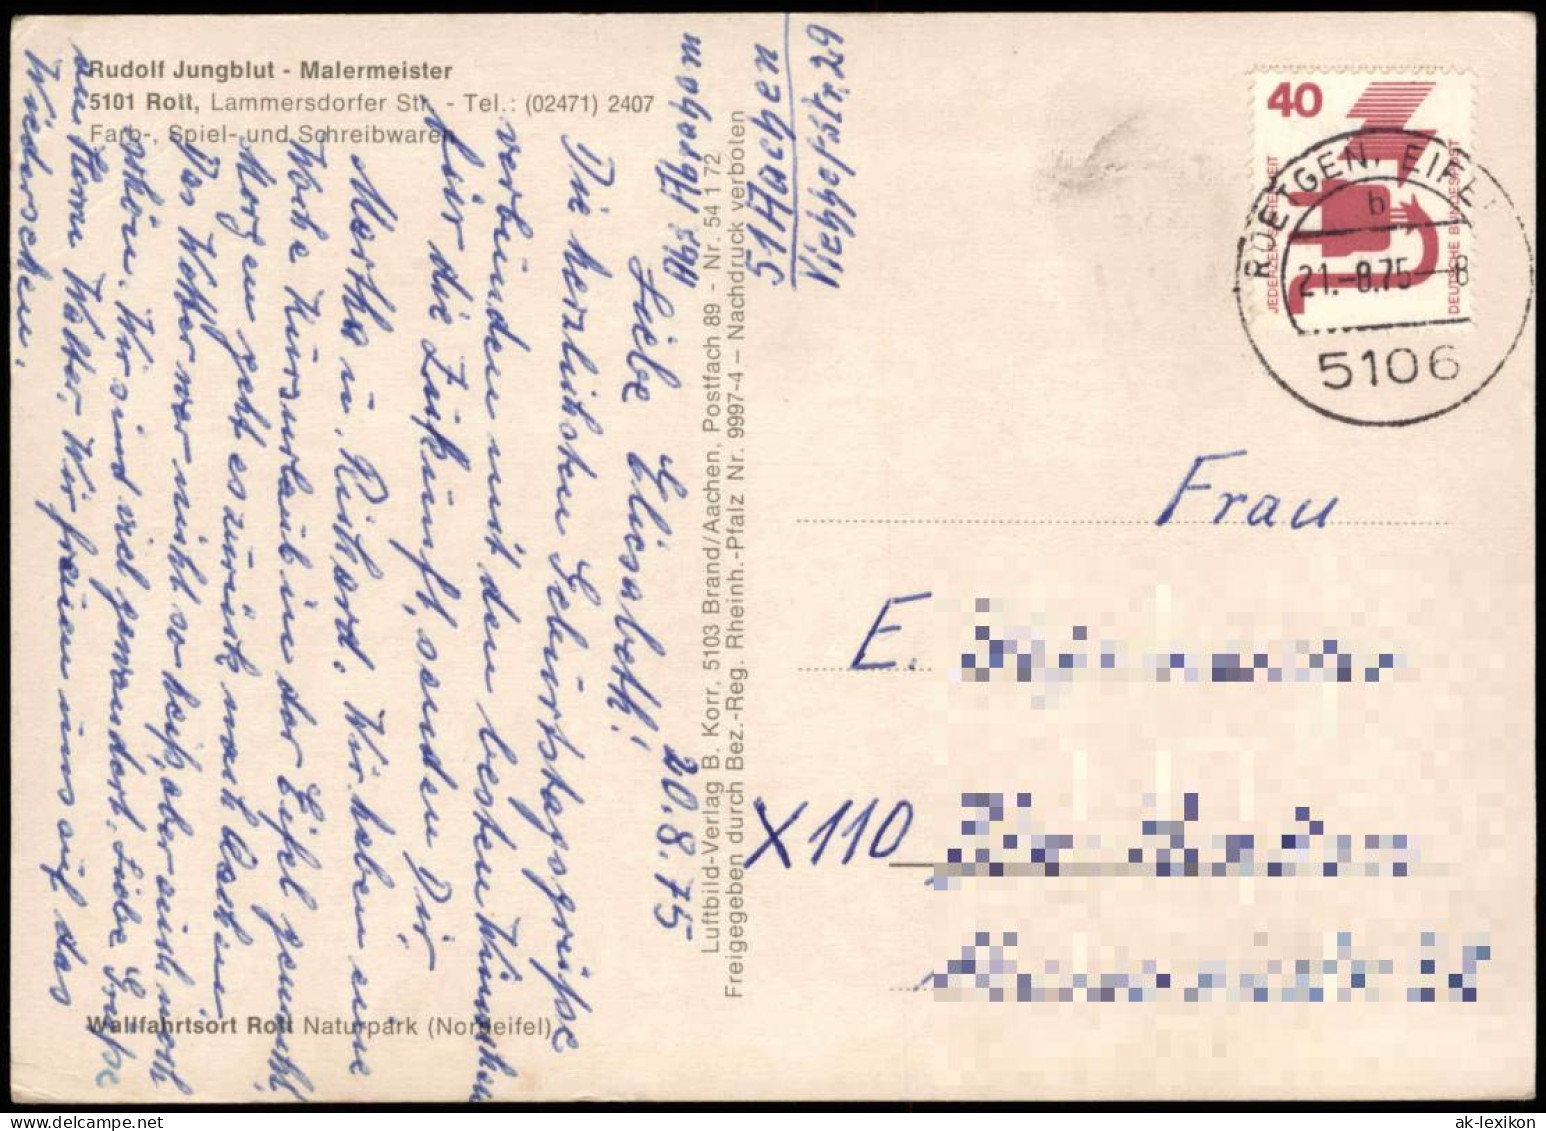 Rudolf Jungblut - Malermeister
5101 Rott, Lammersdorfer Str. - Tel.: (02471) 2407
Farb-, Spiel- und Schreibwaren
Wallfahrtsort Rott Naturpark (Nordeifel)
Luftbild-Verlag B. Korr, 5103 Brand/Aachen, Postfach 89 - Nr. 54 1 72
Freigegeben durch Bez.-Reg. Rheinh.-Pfalz Nr. 9997-4 – Nachdruck verboten
51 Aachen
Viehhofstr. 29
20.8.75
Liebe Elisabeth!
Die herzlichsten Geburtstagsgrüße
verbunden mit den besten Wünschen
für die Zukunft, senden Dir
Martha u. Richard. Wir haben eine
Woche Kurzurlaub in der Eifel gemacht.
Morgen geht es zurück nach Aachen
Das Wetter war nicht so heiß, aber auch noch
schön. Wir sind viel gewandert. Liebe Grüße
an Herrn Walter. Wir freuen uns auf das
Wiedersehen.
40
JEDERZEIT SICHERHEIT
DEUTSCHE BUNDESPOST
ROETGEN, EIFEL
b
21.-8.75--8
5106
Frau
E.
X110
ak-lexikon